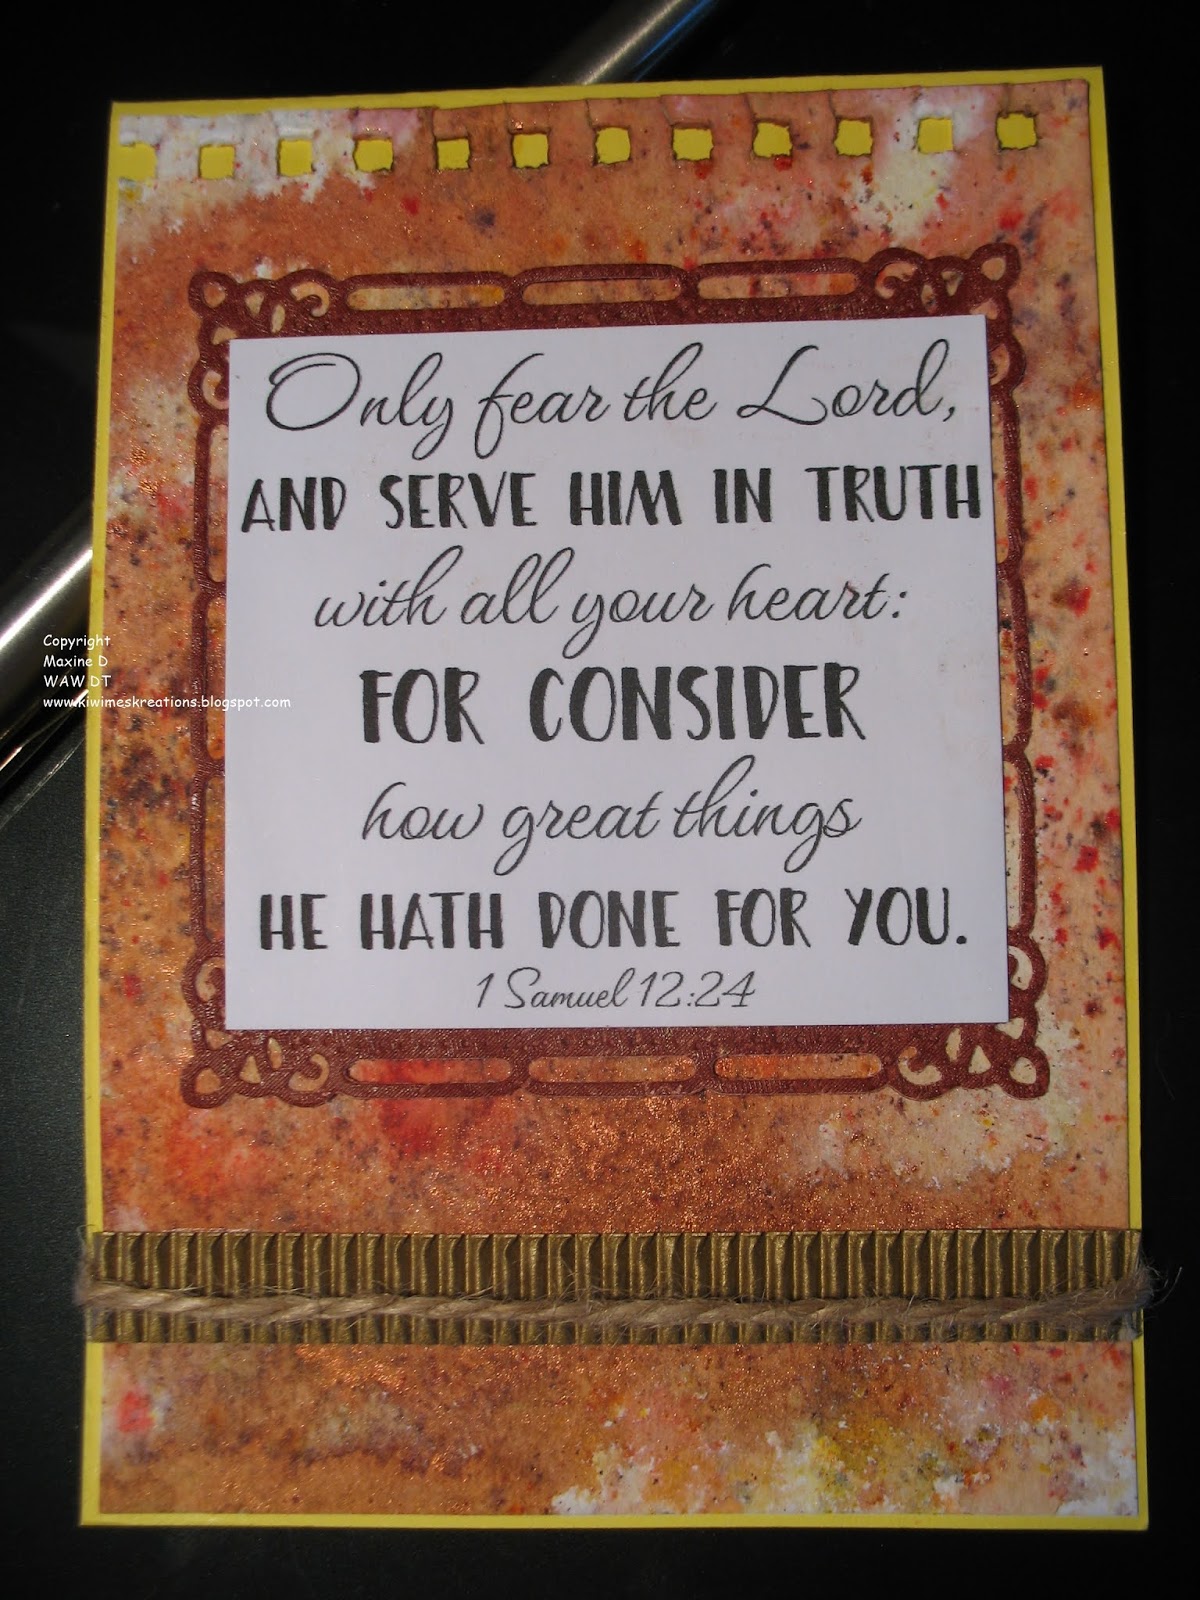 Only fear the Lord,
AND SERVE HIM IN TRUTH
with all your heart:
FOR CONSIDER
how great things
HE HATH DONE FOR YOU.
1 Samuel 12:24
Copyright
Maxine D
WAW DT
www.kiwimeskreations.blogspot.com